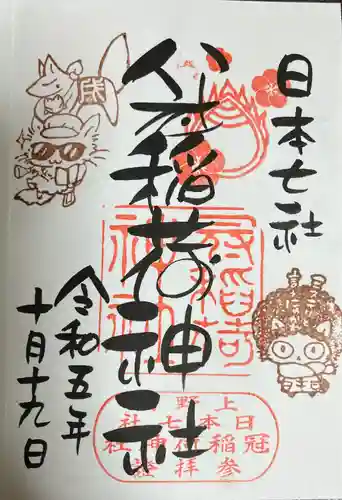 日本七社
冠稲荷神社
令和五年
十月十九日
冠稲荷神社
上野
日本七社
冠稲荷神社
参拝